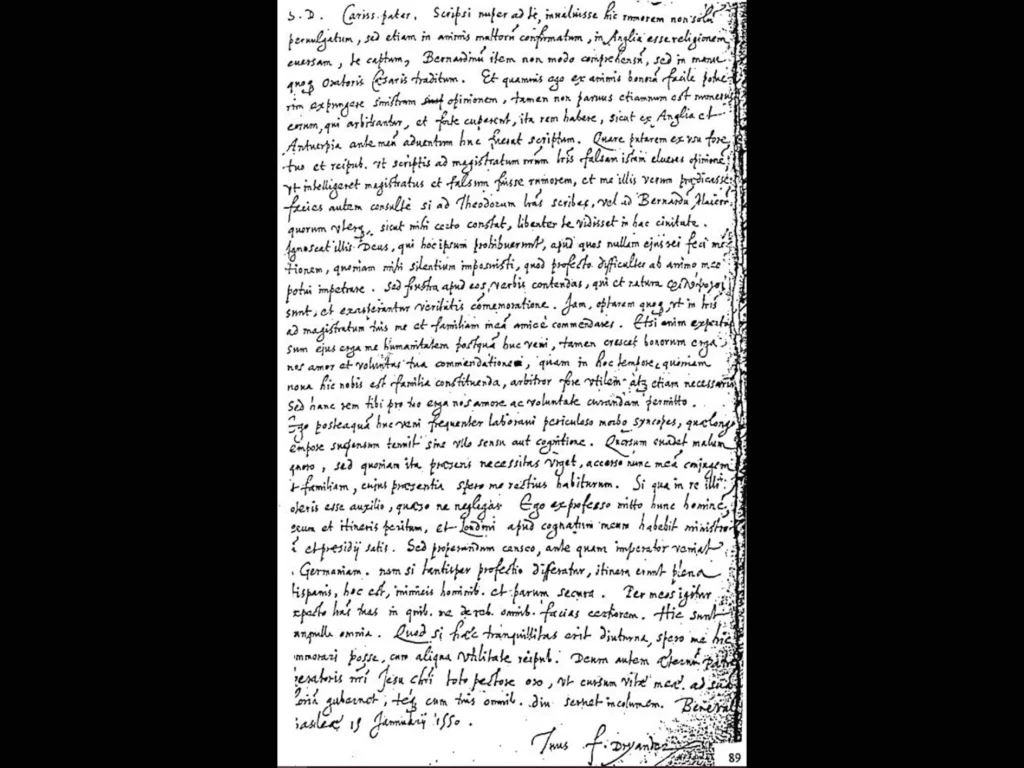 S. D. Cariss. pater. Scripsi nuper ad te, invaluisse hic rumorem non solũ
pervulgatum, sed etiam in animis multorũ confirmatum, in Anglia esse religionem
eversam, te captum, Bernardinũ item non modo comprehensũ, sed in manu
quoq̃ Oratoris Cæsaris traditum. Et quamvis ego ex animis bonorũ facile potue
rim expungere sinistram opinionem, tamen non parvus etiamnum est numerus
eorum, qui arbitrantur, et forte cuperent, ita rem habere, sicut ex Anglia et
Antuerpia ante meũ adventum huc fuerat scriptum. Quare putarem ex usu fore
tuo et reipub. ut scriptis ad magistratum nrũm lris falsam istam elueres opinionẽ,
ut intelligeret magistratus et falsum fuisse rumorem, et me illis verum prædicasse.
facies autem consultè si ad Theodorum lras scribes, vel ad Bernardũ
quorum uterq̃, sicut mihi certo constat, libenter te vidisset in hac civitate.
Ignoscat illis Deus, qui hoc ipsum prohibuerunt, apud quos nullam ejus rei feci mẽ
tionem, quoniam mihi silentium imposuisti, quod profecto difficulter ab animo meo
potui impetrare. Sed frustra apud eos verbis contendas, qui et natura
sunt, et exasperantur veritatis cõmemoratione. Jam, optarem quoq̃, ut in lris
ad magistratum tuis me et familiam meã amicè commendares. Etsi enim expertus
sum ejus erga me humanitatem postquã huc veni, tamen crescet bonorum erga
nos amor et voluntas tua commendatione, quam in hoc tempore, quoniam
nova hic nobis est familia constituenda, arbitror fore utilem atq̃ etiam necessariã
Sed hanc rem tibi pro tuo erga nos amore ac voluntate curandam permitto.
Ego posteaquã huc veni frequenter laboravi periculoso morbo syncopes, quæ longo
tempore suspensum tenuit sine ullo sensu aut cognitione. Quorsum evadet malum
quæro, sed quoniam ita præsens necessitas urget, accerso nunc meã conjugem
et familiam, cujus præsentia spero me rectius habiturum. Si qua in re illi
poteris esse auxilio, quæso ne negligas. Ego ex professo mitto hunc hominẽ
et itineris peritum, et Londini apud cognatum meum habebit ministro
et presidij satis. Sed properandum censeo, ante quam imperator veniat
Germaniam. nam si tantisper profectio differatur, itinera erunt plena
hispanis, hoc est, inimicis hominib. et parum secura. Per meos igitur
expecto lras tuas in quib. me de reb. omnib. facias certiorem. Hic sunt
tranquilla omnia. Quod si hæc tranquillitas erit diuturna, spero me hic
commorari posse, cum aliqua utilitate reipub. Deum autem æternũ patrẽ
liberatoris nri Jesu chri toto pectore oro, ut cursum vitæ meæ ad suã
gloriã gubernet, teq̃ cum tuis omnib. diu servet incolumem. Benevale
Basileæ 19 Januarij 1550.
Tuus F. Dryander
89